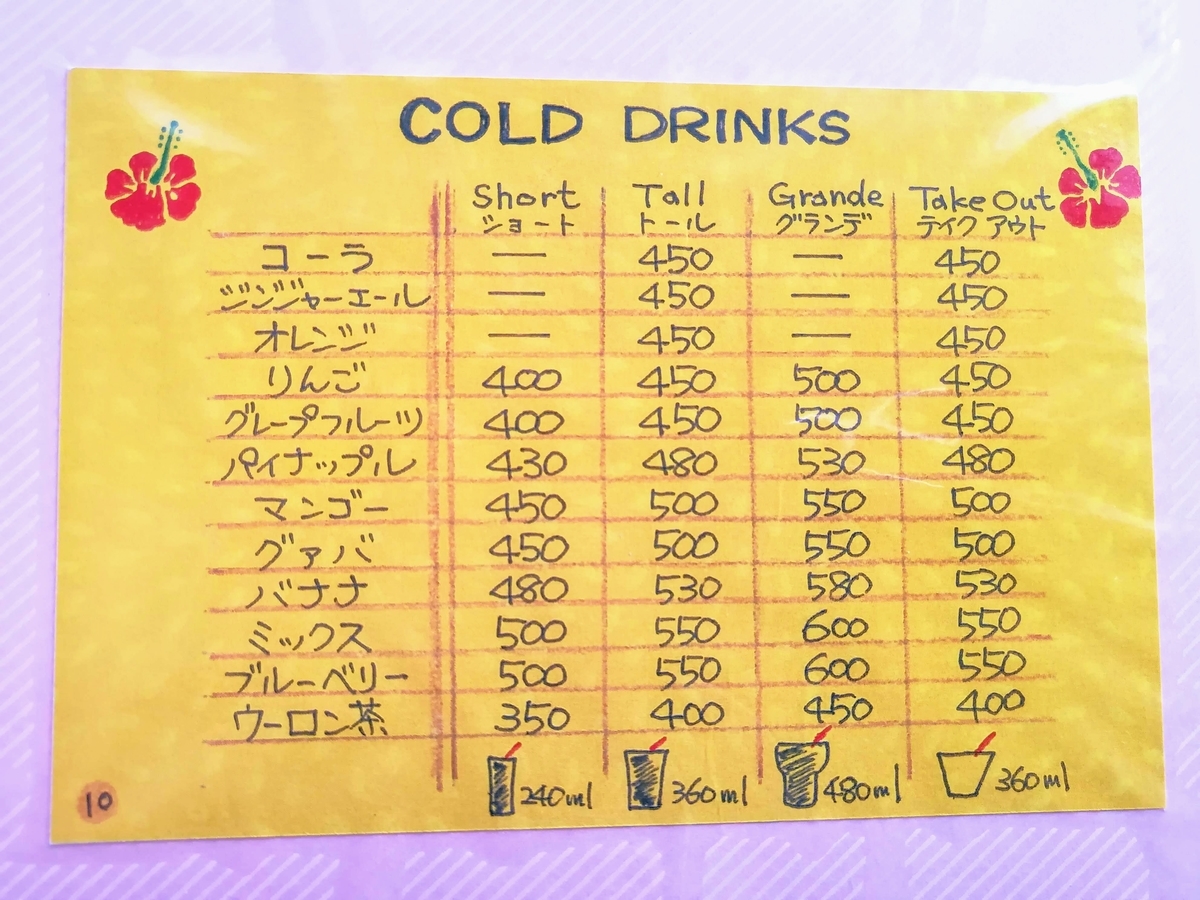 COLD DRINKS
Short Tall Grande Take Out
ショート トール グランデ テイクアウト
コーラ — 450 — 450
ジンジャーエール — 450 — 450
オレンジ — 450 — 450
りんご 400 450 500 450
グレープフルーツ 400 450 500 450
パイナップル 430 480 530 480
マンゴー 450 500 550 500
グァバ 450 500 550 500
バナナ 480 530 580 530
ミックス 500 550 600 550
ブルーベリー 500 550 600 550
ウーロン茶 350 400 450 400
240ml 360ml 480ml 360ml
10